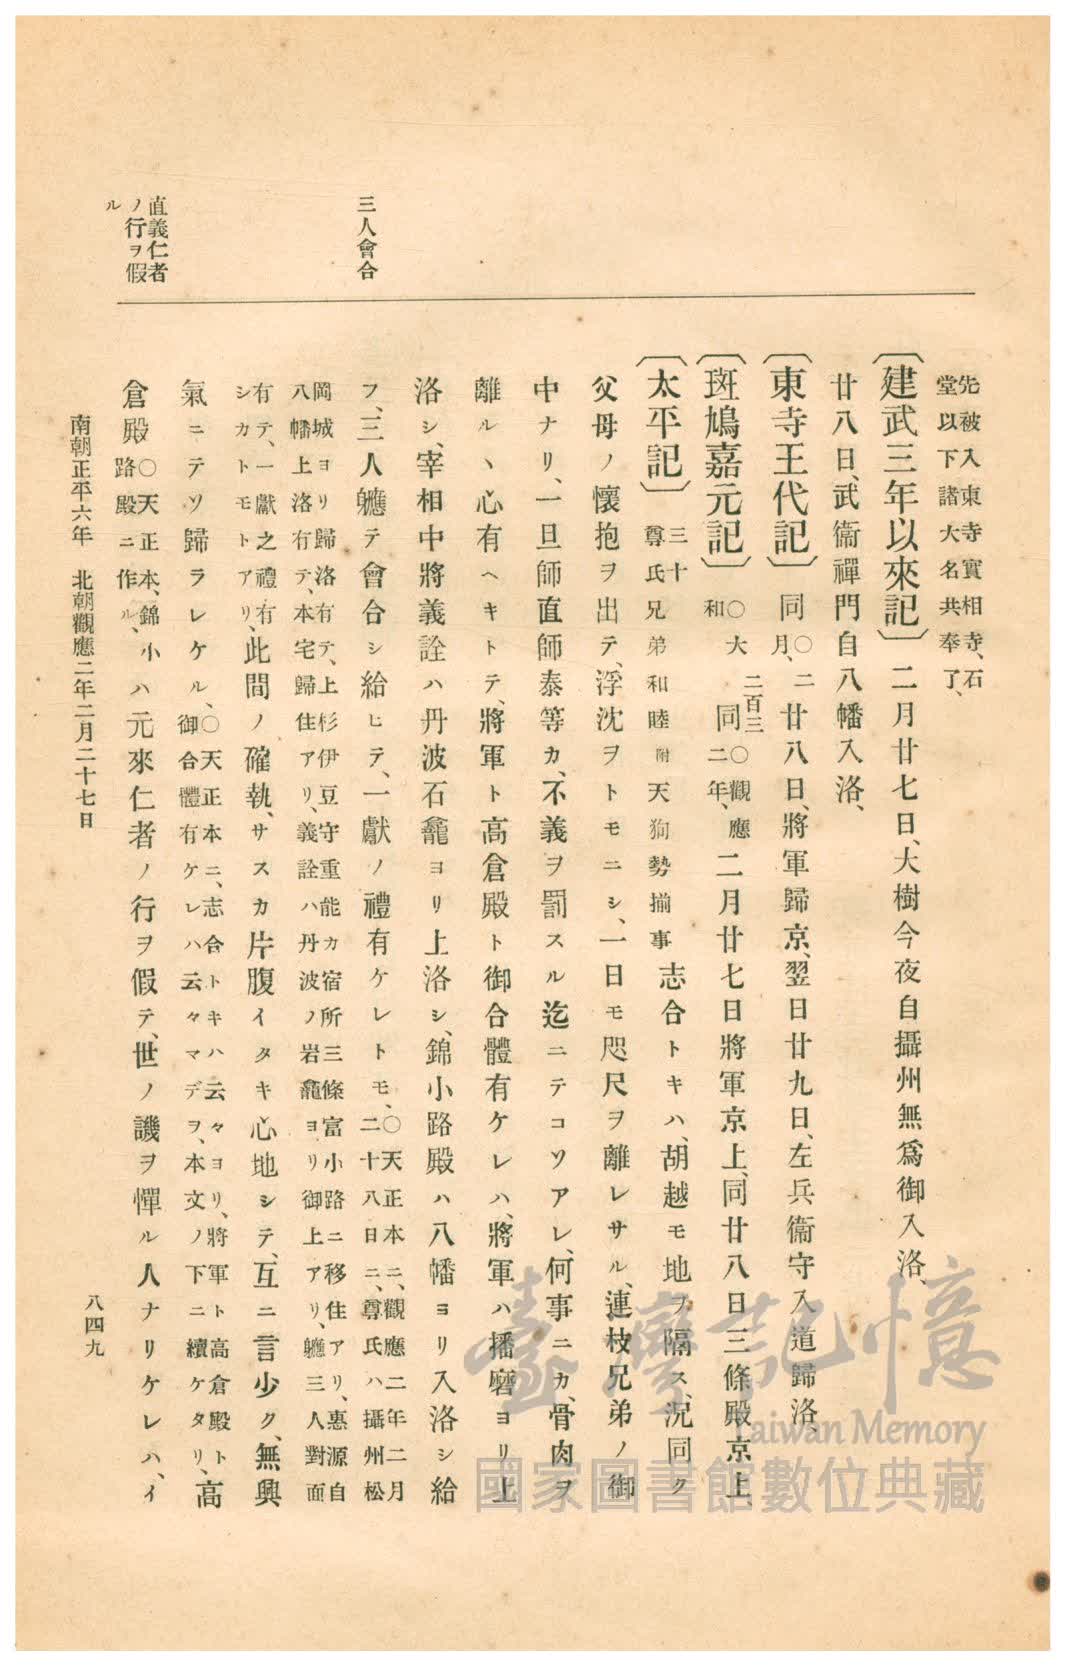 三人會合
直義仁者
ノ行ヲ假
ル
先被入東寺實相寺、石
堂以下諸大名共奉了、
〔建武三年以來記〕二月廿七日、大樹今夜自攝州無爲御入洛、
廿八日、武衞禪門自八幡入洛、
〔東寺王代記〕同〇二月、廿八日、將軍歸京、翌日廿九日、左兵衞守入道歸洛、
〔斑鳩嘉元記〕〇大和 二百三 同〇觀應二年、二月廿七日將軍京上、同廿八日三條殿京上、
〔太平記〕三十 尊氏兄弟和睦附天狗勢揃事 志合トキハ、胡越モ地ヲ隔ス、況同ク
父母ノ懷抱ヲ出テ、浮沈ヲトモニシ、一日モ咫尺ヲ離レサル、連枝兄弟ノ御
中ナリ、一旦師直師泰等カ、不義ヲ罰スル迄ニテコソアレ、何事ニカ、骨肉ヲ
離ルヽ心有ヘキトテ、將軍ト高倉殿ト御合體有ケレハ、將軍ハ播磨ヨリ上
洛シ、宰相中將義詮ハ丹波石龕ヨリ上洛シ、錦小路殿ハ八幡ヨリ入洛シ給
フ、三人軈テ會合シ給ヒテ、一獻ノ禮有ケレトモ、〇天正本ニ、觀應二年二月
二十八日ニ、尊氏ハ攝州松
岡城ヨリ歸洛有テ、上杉伊豆守重能カ宿所三條富小路ニ移住アリ、惠源自
八幡上洛有テ、本宅歸住アリ、義詮ハ丹波ノ岩龕ヨリ御上アリ、軈三人對面
有テ、一獻之禮有
シカトモトアリ、此間ノ確執、サスカ片腹イタキ心地シテ、互ニ言少ク、無興
氣ニテソ歸ラレケル、〇天正本ニ、志合トキハ云々ヨリ、將軍ト高倉殿ト
御合體有ケレハ云々マデヲ、本文ノ下ニ續ケタリ、高
倉殿〇天正本、錦小路殿ニ作ル、ハ元來仁者ノ行ヲ假テ、世ノ譏ヲ憚ル人ナリケレハ、イ
南朝正平六年 北朝觀應二年二月二十七日
八四九
臺灣記憶
Taiwan Memory
國家圖書館數位典藏